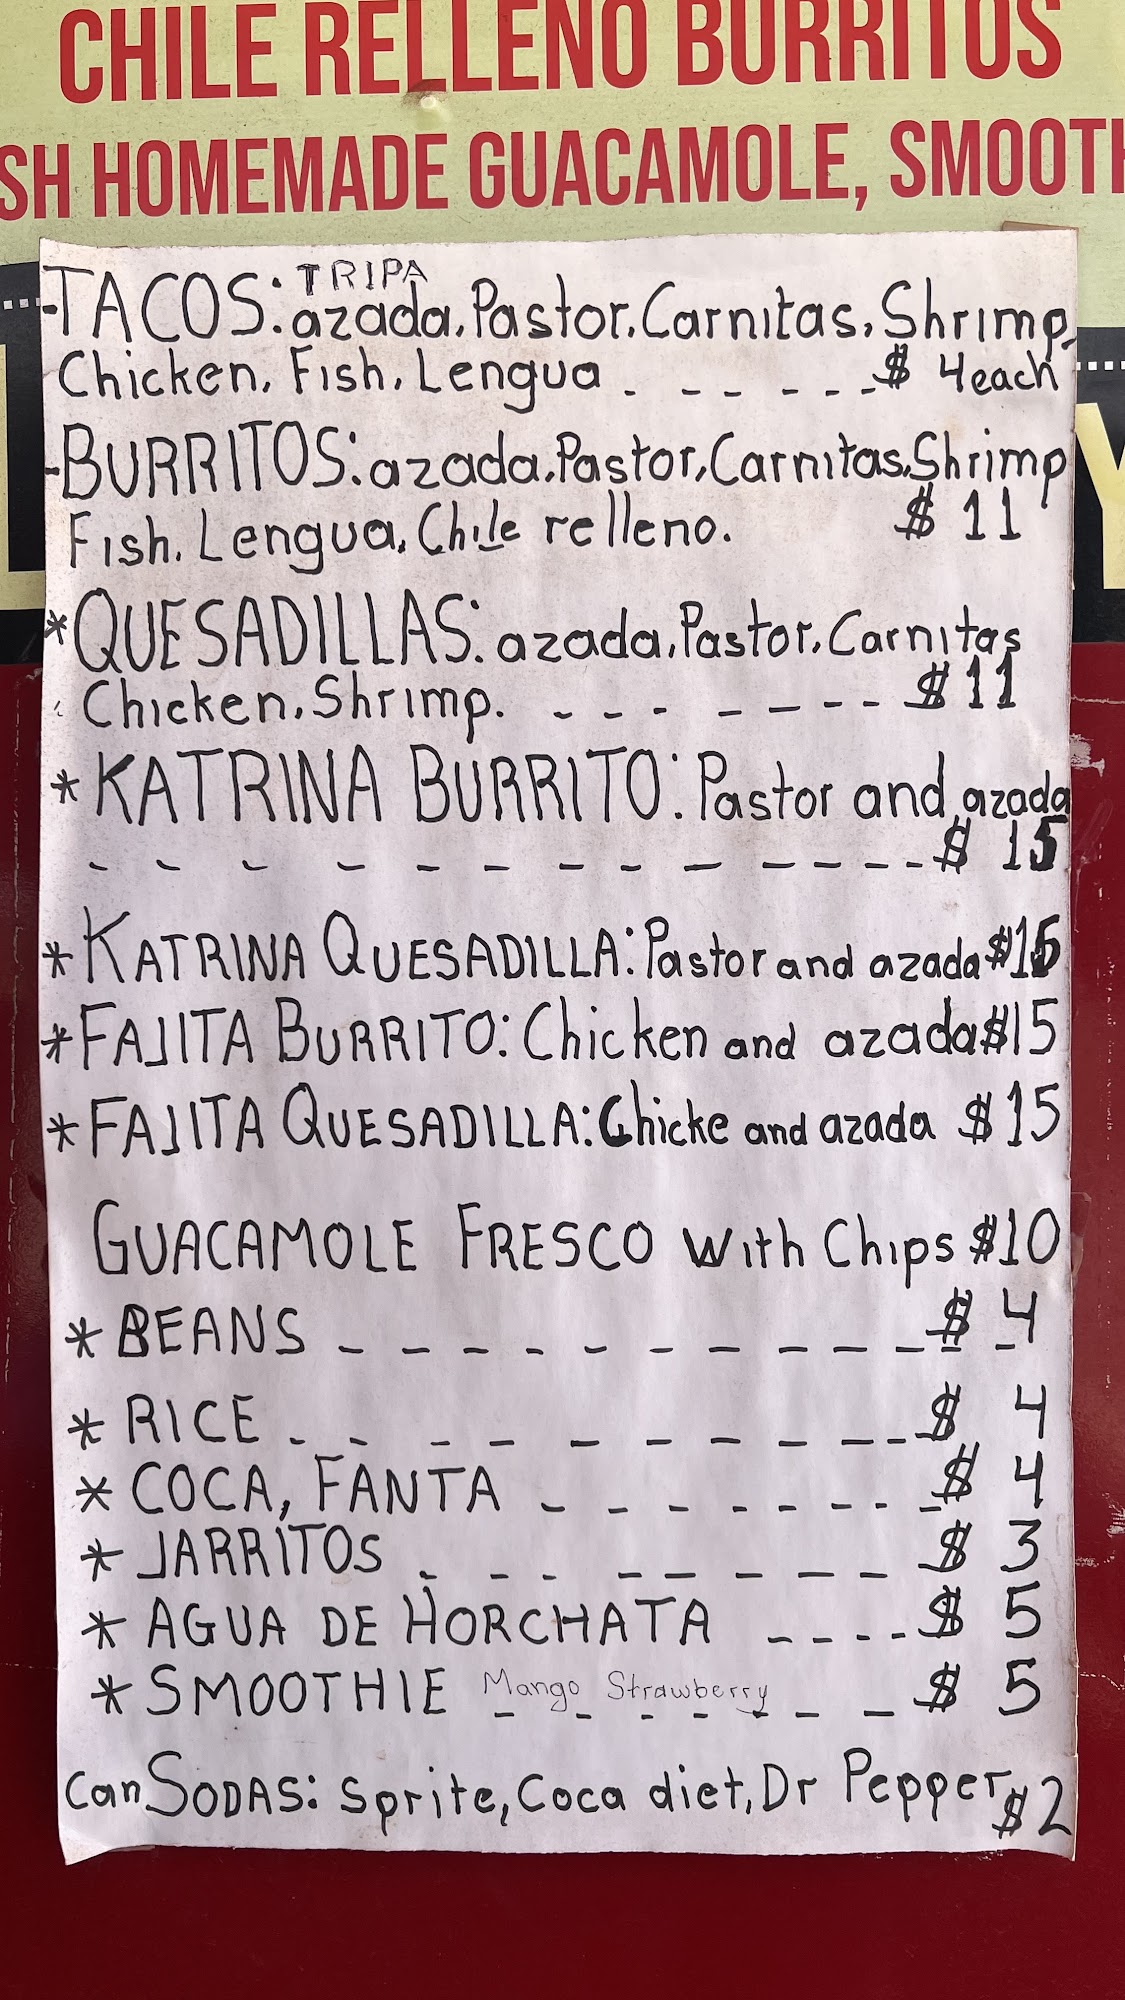 CHILE RELLENO BURRITOS
SH HOMEMADE GUACAMOLE, SMOOTH
TRIPA
-TACOS: azada, Pastor, Carnitas, Shrimp,
Chicken, Fish, Lengua _ _ _ _ _ _ $ 4 each
-BURRITOS: azada, Pastor, Carnitas, Shrimp
Fish, Lengua, Chile relleno. $ 11
*QUESADILLAS: azada, Pastor, Carnitas
Chicken, Shrimp. _ _ _ _ _ _ _ _ $ 11
* KATRINA BURRITO: Pastor and azada
_ _ _ _ _ _ _ _ _ _ _ _ _ $ 15
* KATRINA QUESADILLA: Pastor and azada $15
* FAJITA BURRITO: Chicken and azada $15
* FAJITA QUESADILLA: Chicke and azada $15
GUACAMOLE FRESCO with Chips $10
* BEANS _ _ _ _ _ _ _ _ _ _ _ $ 4
* RICE _ _ _ _ _ _ _ _ _ _ $ 4
* COCA, FANTA _ _ _ _ _ _ _ _ $ 4
* JARRITOS _ _ _ _ _ _ _ $ 3
* AGUA DE HORCHATA _ _ _ _ $ 5
* SMOOTHIE Mango Strawberry _ _ _ _ _ _ _ $ 5
can SODAS: sprite, Coca diet, Dr Pepper $2
Y